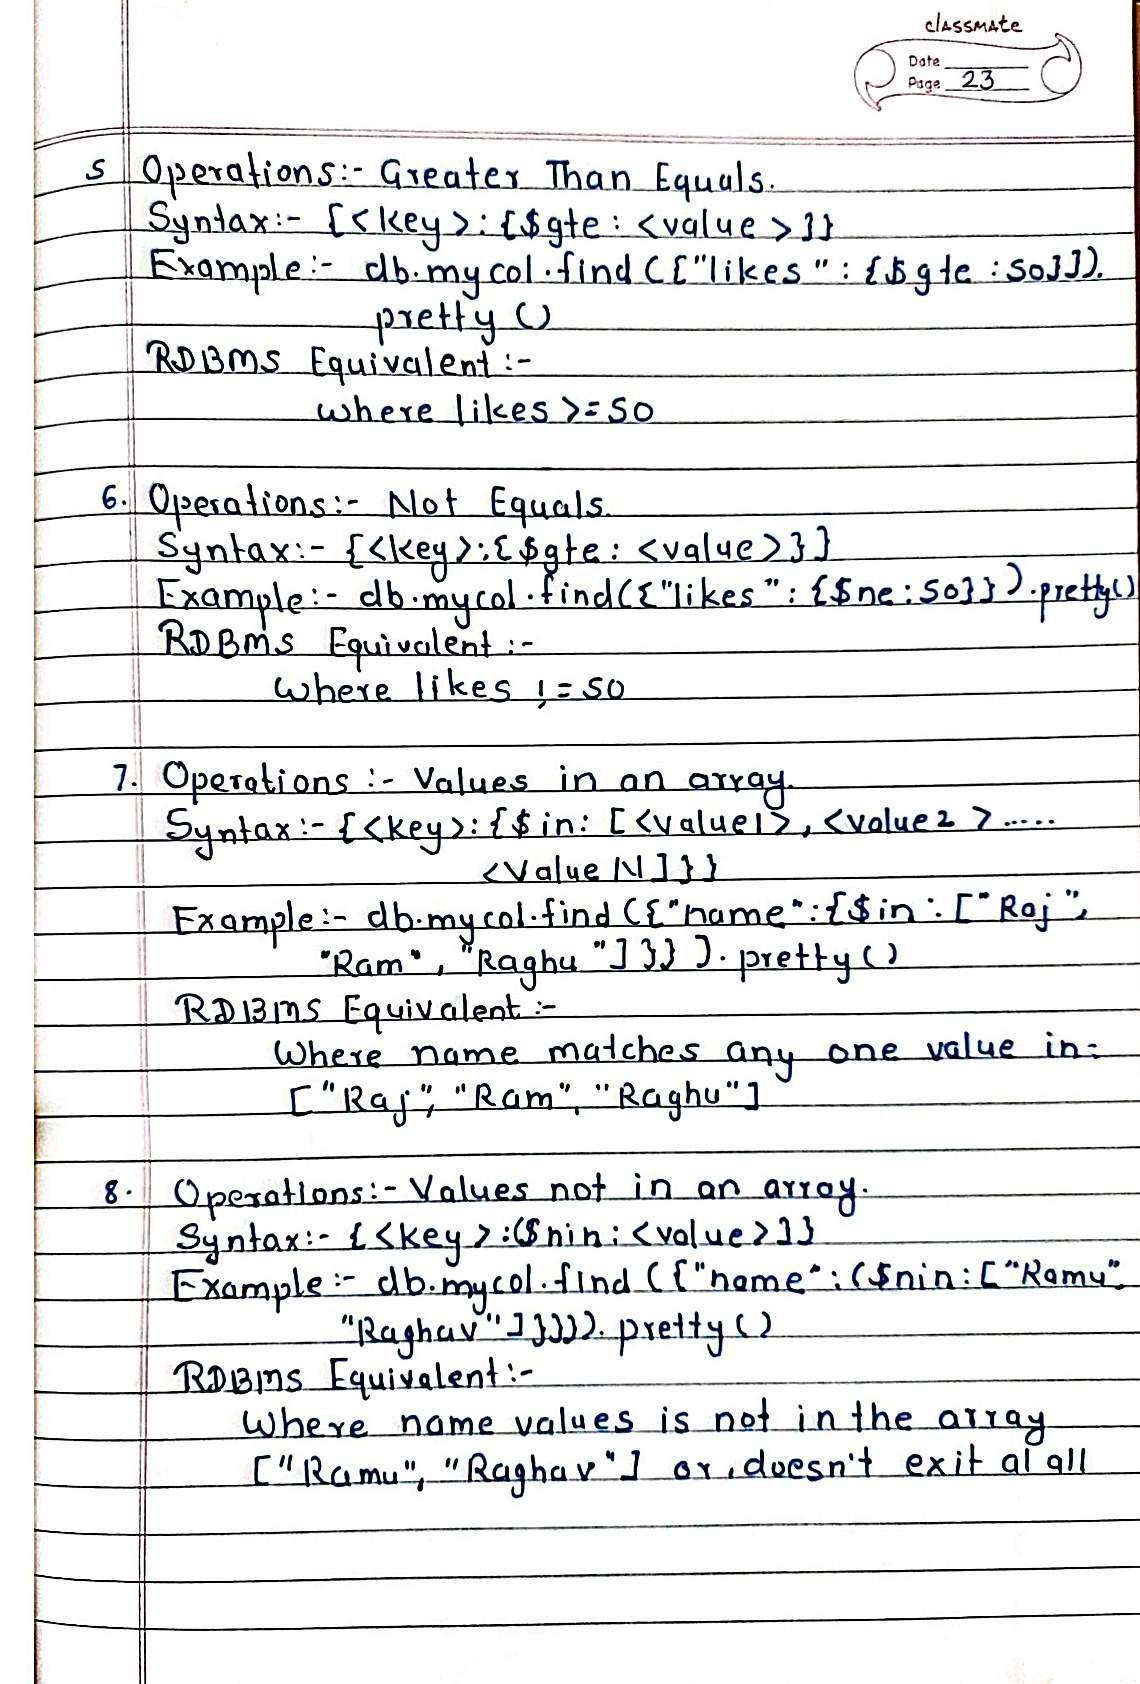 classmate
Date
Page 23
5 Operations:- Greater Than Equals.
Syntax:- {<key>:{$gte: <value>}}
Example:- db.mycol.find({"likes":{$gte:50}}).
pretty()
RDBMS Equivalent:-
where likes >=50
6. Operations:- Not Equals.
Syntax:- {<key>:{$gte: <value>}}
Example:- db.mycol.find({"likes":{$ne:50}}).pretty()
RDBMS Equivalent:-
Where likes != 50
7. Operations:- Values in an array.
Syntax:- {<key>:{$in: [<value1>, <value2>.....
<Value N]}}
Example:- db.mycol.find({"name":{$in: ["Raj",
"Ram", "Raghu"]}}).pretty()
RDBMS Equivalent:-
Where name matches any one value in:
["Raj", "Ram", "Raghu"]
8. Operations:- Values not in an array.
Syntax:- {<key>:($nin:<value>]}
Example:- db.mycol.find({"name":($nin:["Ramu",
"Raghav"]}})).pretty()
RDBMS Equivalent:-
Where name values is not in the array
["Ramu", "Raghav"] or, doesn't exit at all